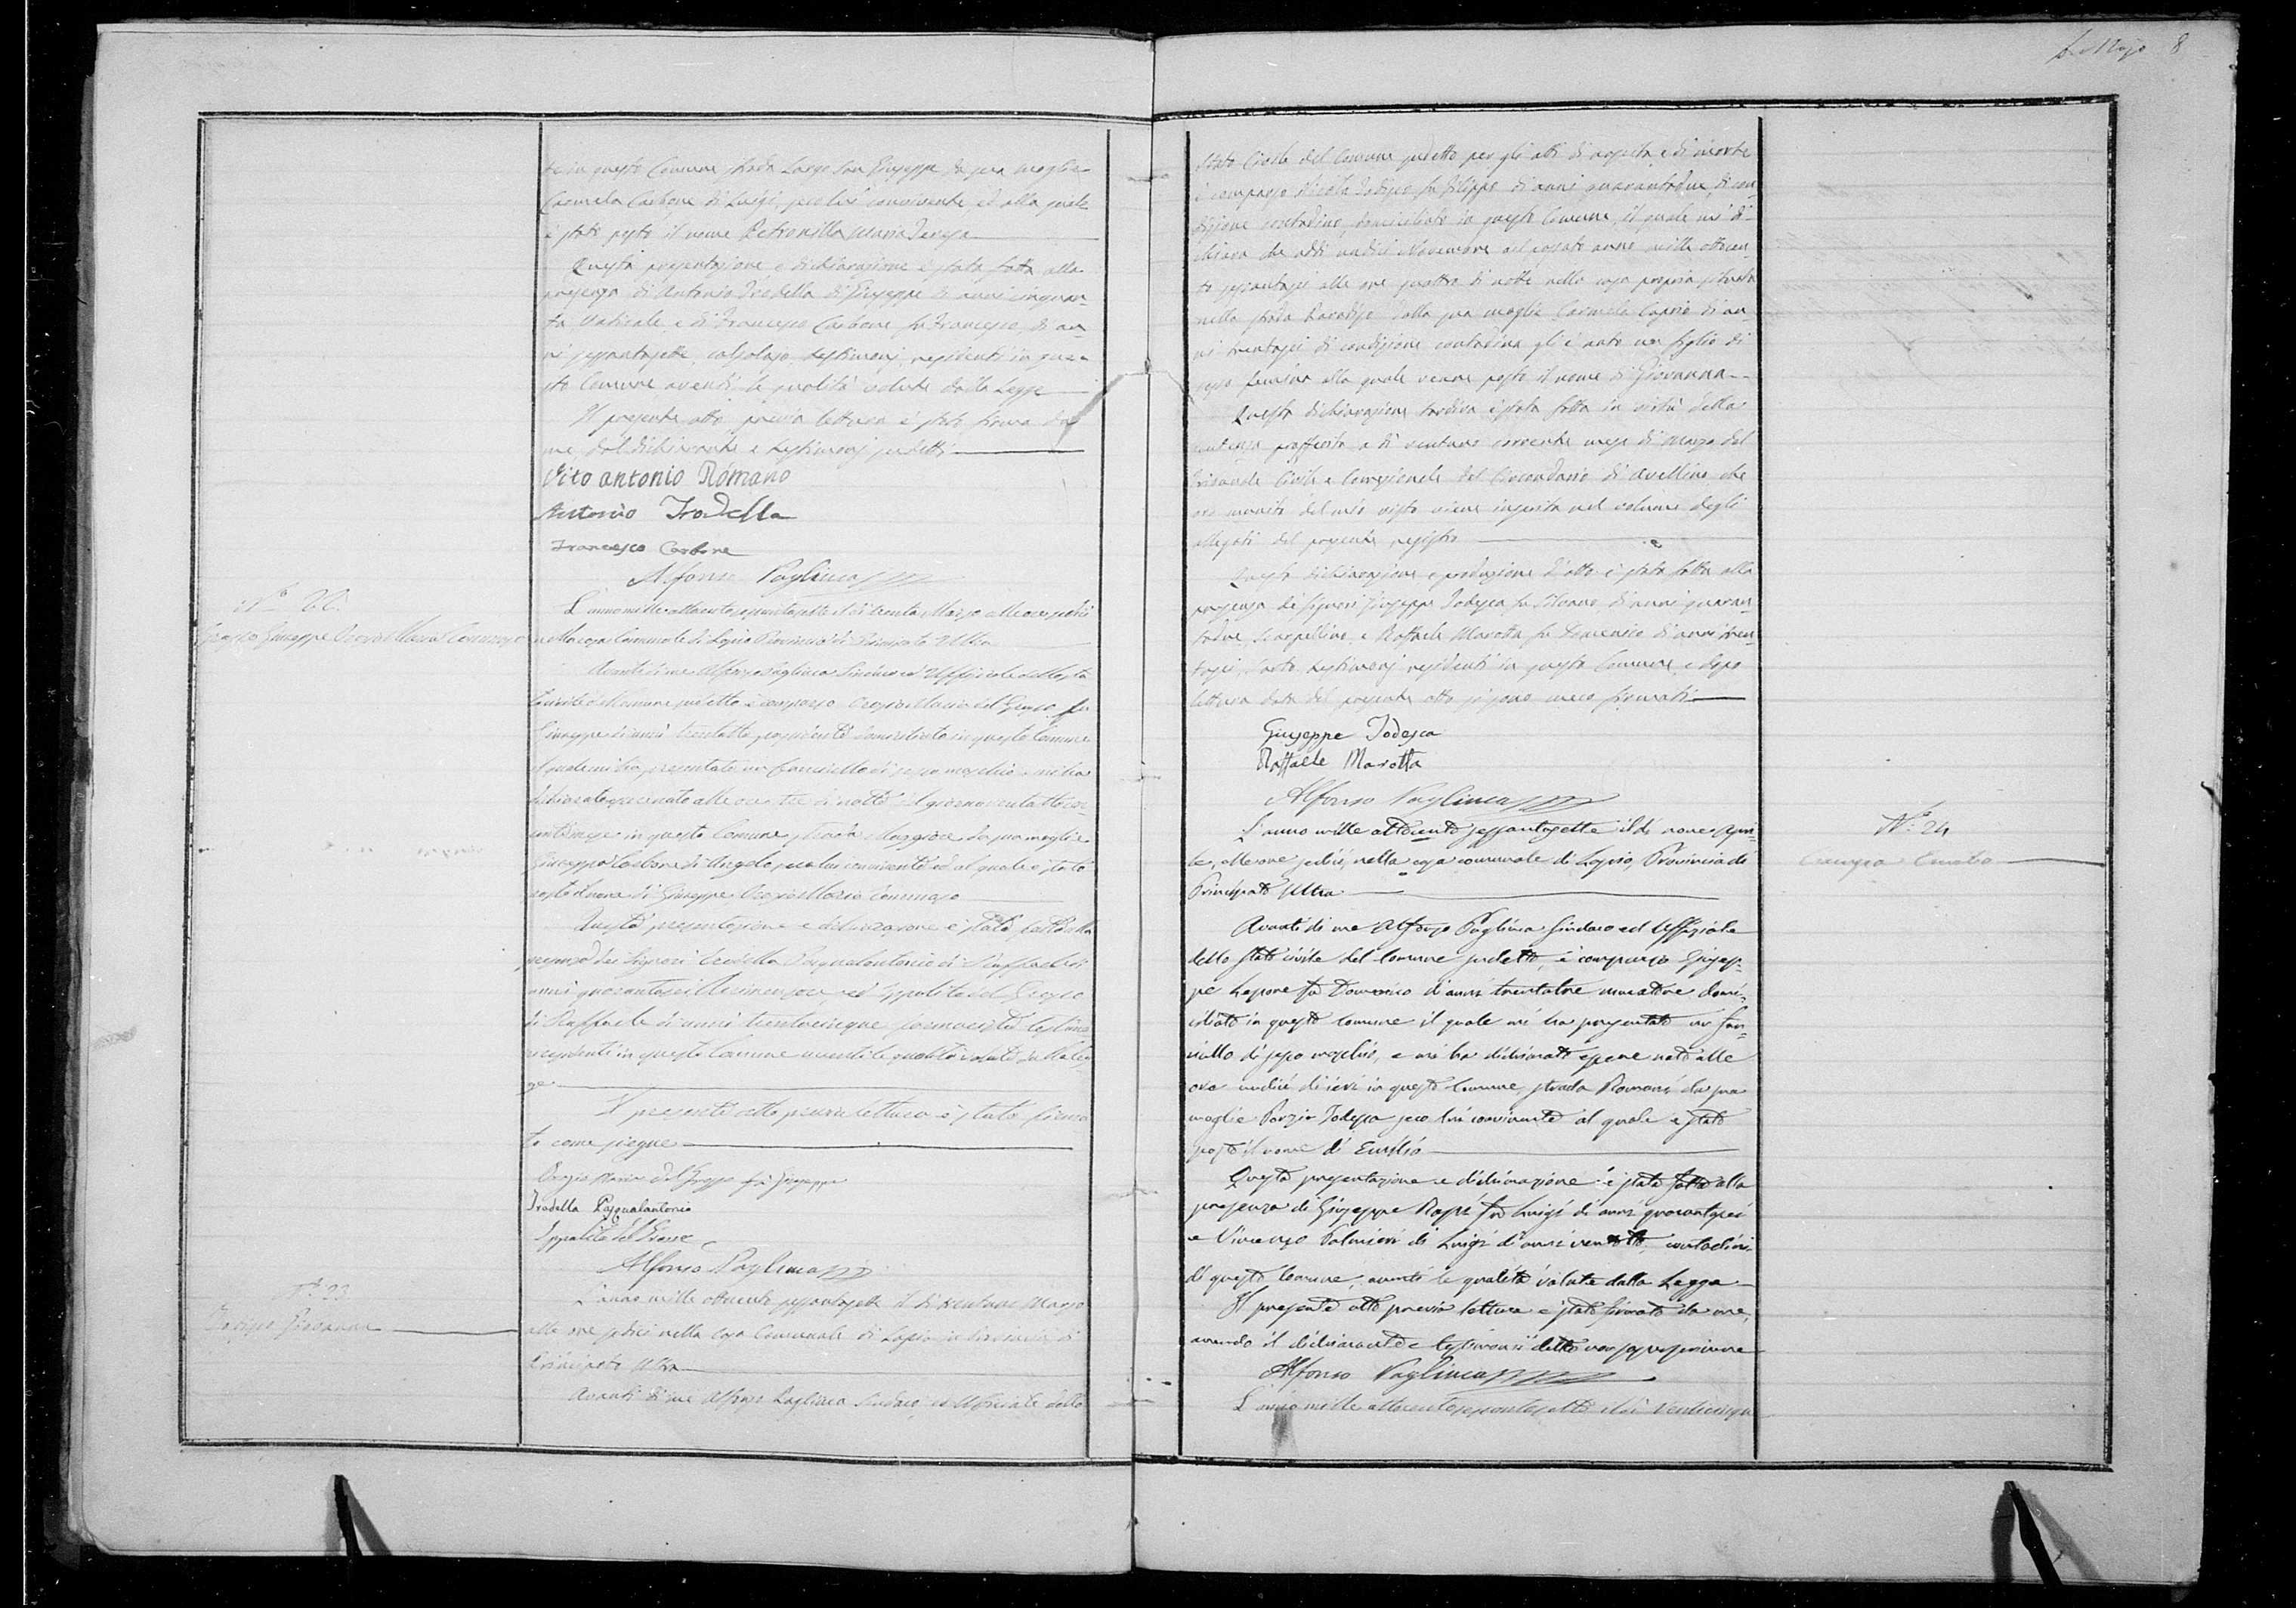 8
te in questo Comune strada Largo San Giuseppe da sua moglie
Carmela Carbone di Luigi, seco lui convivente, ed alla quale
è stato posto il nome Petronilla Maria Teresa
Questa presentazione e dichiarazione è stata fatta alla
presenza di Antonio Trodella di Giuseppe di anni cinquan-
ta Vaticale, e di Francesco Carbone fu Francesco, di an-
ni sessantasette, calzolajo testimonj residenti in que-
sto Comune aventi le qualità volute dalla Legge
Il presente atto previa lettura è stato firmato da
me, dal dichiarante e testimonj sudetti
Vito antonio Romano
Antonio Trodella
Francesco Carbone
Alfonso Pagliuca
N.º 22.
Giuseppe Orazio Maria Tommaso
L'anno mille ottocento sessantasette il dì trenta Marzo alle ore sedici
nella casa Comunale di Lapio Provincia di Principato Ultra
Avanti di me Alfonso Pagliuca Sindaco ed Uffiziale dello sta
to civile del Comune sudetto è comparso Orazio Maria del Grosso fu
Giuseppe di anni trentotto proprietà domiciliato in questo Comune
il quale mi ha presentato un fanciullo di sesso maschio e mi ha
dichiarato essere nato alle ore tre di notte il giorno ventotto cor
rente mese in questo Comune, strada Maggiore da sua moglie
Giuseppa Carbone di Angelo, seco lui convivente ed al quale è stato
posto il nome di Giuseppe Orazio Maria Tommaso
Questa presentazione e dichiarazione è stata fatta alla
presenza dei Signori Trodella Pasqualantonio di Raffaele di
anni quarantasei, ed Ippolito del Grosso
di Raffaele di anni trentacinque farmacista testimo
residenti in questo Comune aventi le qualità volute dalla leg
ge
Il presente atto previa lettura è stato firma
to come siegue
Orazio Maria Del Grosso fu Giuseppe
Trodella Pasqualantonio
Ippolito del Grosso
Alfonso Pagliuca
N.º 23
Giovanna
L'anno mille ottocento sessantasette il dì trentuno Marzo
alle ore sedici nella casa Comunale di Lapio provincia di
Principato Ultra
Avanti di me Alfonso Pagliuca Sindaco, ed Uffiziale dello
Stato Civile del Comune sudetto per gli atti di nascita e di morte
è comparso Nicola fu Filippo di anni quarantadue, di con
dizione contadino, domiciliato in questo Comune, il quale mi di
chiara che addì undici Novembre del passato anno mille ottocen
to sessantasei alle ore quattro di notte nella casa propria situata
nella strada Paradiso dalla sua moglie Carmela Caprio di an
ni trentasei di condizione contadina gli è nato un figlio di
sesso femina alla quale venne posto il nome di Giovanna
Questa dichiarazione tardiva è stata fatta in virtù della
sentenza profferita a dì ventuno corrente mese di Marzo dal
Tribunale Civile e Correzionale del Circondario di Avellino che
ora munita del mio visto viene inserita nel volume degli
allegati del presente registro
Questa dichiarazione e produzione d'atto è stata fatta alla
presenza de' Signori Giuseppe Todesca fu Silvano di anni quaran
tadue, scarpellino e Raffaele Marotta fu Domenico di anni tren
tasei, sarto, testimonj residenti in questo Comune, e dopo
lettura data del presente atto si sono meco firmati
Giuseppe Todesca
Raffaele Marotta
Alfonso Pagliuca
N.º 24
L'anno mille ottocento sessantasette il dì nove Apri-
le, alle ore sedici, nella casa comunale di Lapio, Provincia di
Principato Ultra
Avanti di me Alfonso Pagliuca Sindaco ed Uffiziale
dello stato civile del Comune sudetto, è comparso Giusep-
pe Lepore fu Domenico d'anni trentatre muratore domi-
ciliato in questo comune il quale mi ha presentato un fan-
ciullo di sesso maschio, e mi ha dichiarato essere nato alle
ore undici di ieri in questo Comune, strada Romani da sua
moglie Porzia Todesca seco lui convivente al quale è stato
posto il nome di Emilio
Questa presentazione e dichiarazione è stata fatta alla
presenza di Giuseppe fu Luigi di anni quarantasei
e Vincenzo Palmieri di Luigi d'anni ventotto contadini
di questo Comune, aventi le qualità volute dalla Legge
Il presente atto previa lettura è stato firmato da me,
avendo il dichiarante e testimoni detto non sapere scrivere
Alfonso Pagliuca
L'anno mille ottocento sessantasette il dì venticinque